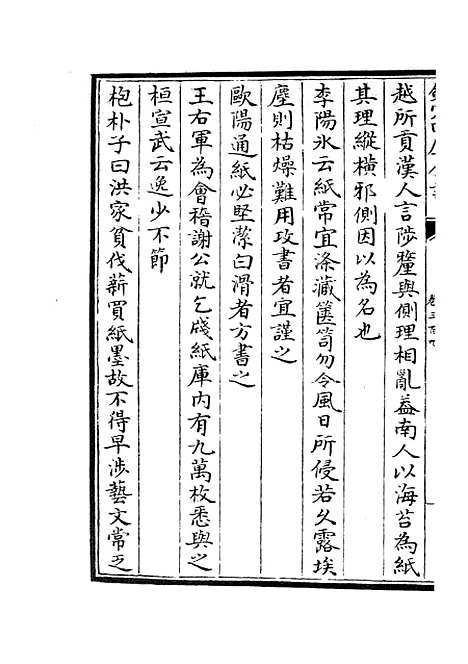 越所貢漢人言陟釐與側理相亂葢南人以海苔為紙
其理縱横邪側因以為名也
李陽氷云紙常宜滌藏篋笥勿令風日所侵若久露埃
塵則枯燥難用攻書者宜謹之
歐陽通紙必堅㓗白滑者方書之
王右軍為會稽謝公就乞牋紙庫内有九萬枚悉與之
桓宣武云逸少不節
枹朴子曰洪家貧伐薪買紙墨故不得早涉藝文常乏